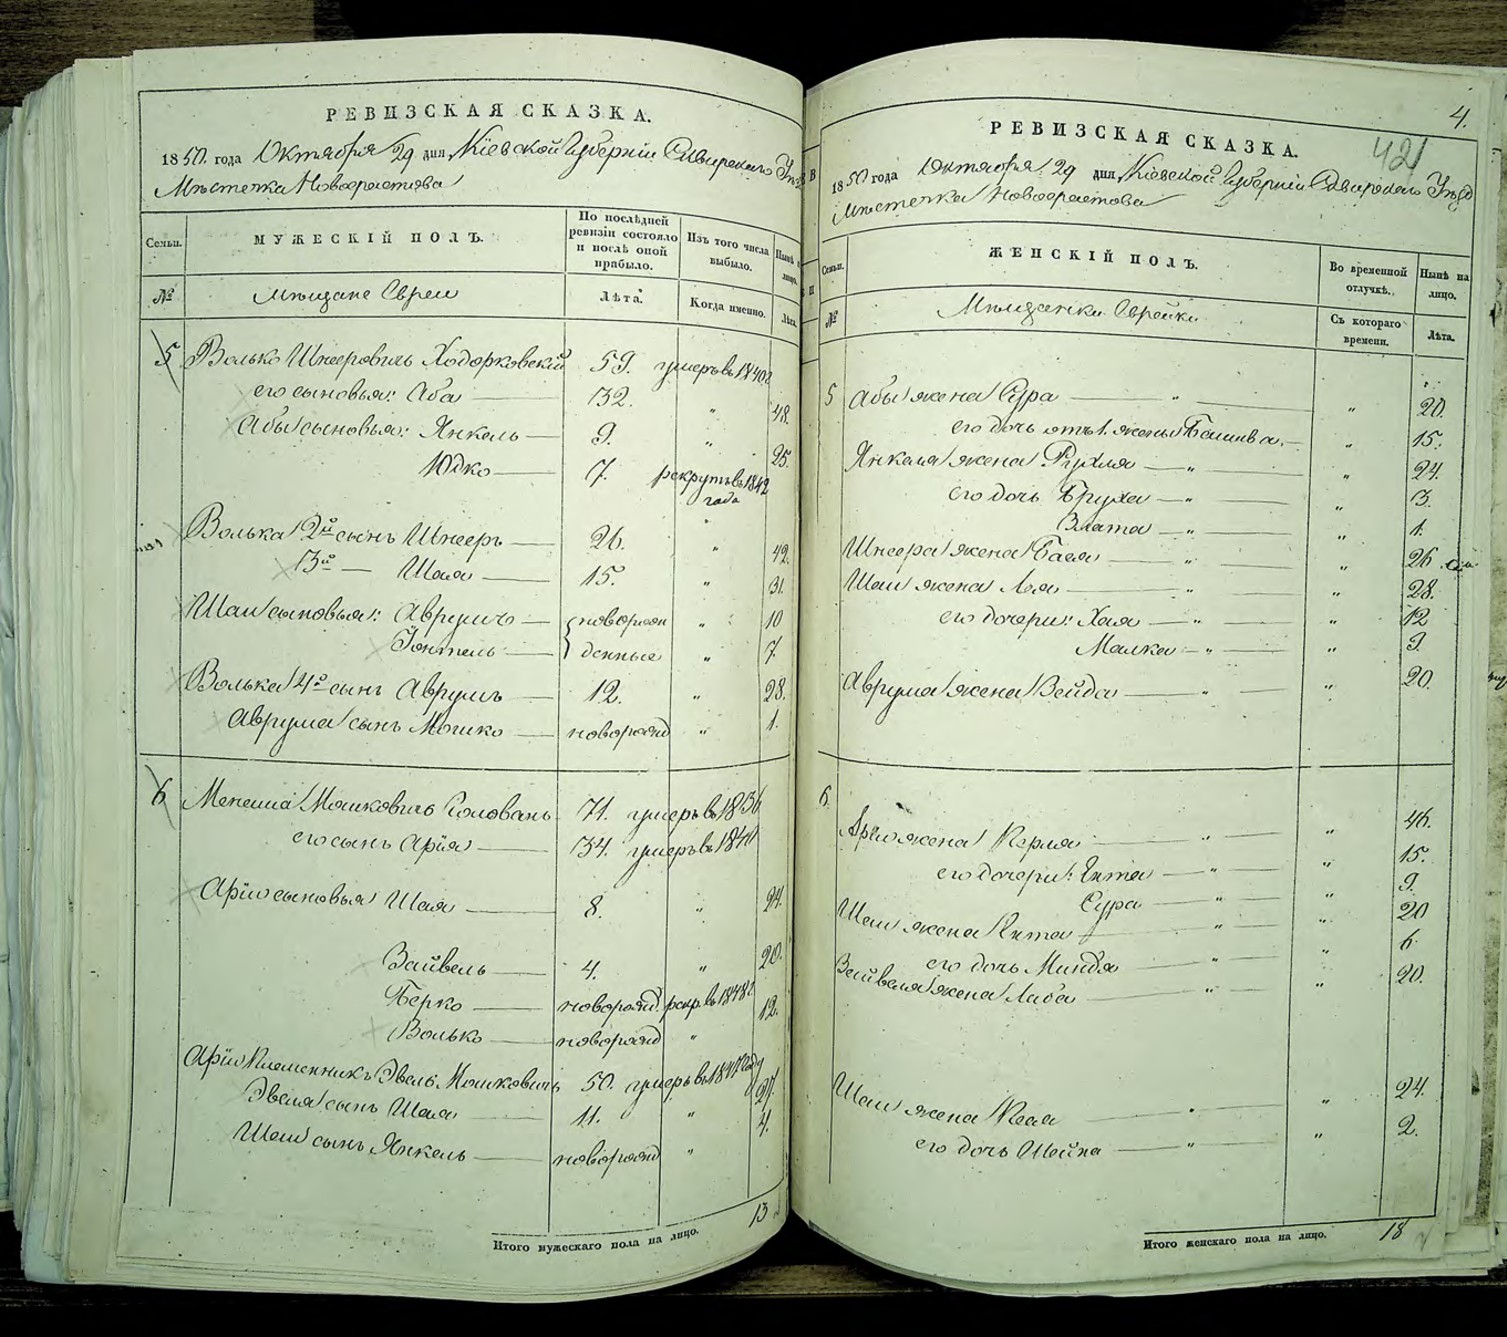 РЕВИЗСКАЯ СКАЗКА.
1850. года Октября 29 дня, Кіевской Губерніи Сквирскаго
Мѣстечка Новофастова
Семьи.
МУЖЕСКІЙ ПОЛЪ.
По послѣдней ревизіи состояло и послѣ оной прибыло.
Изъ того числа выбыло.
Нынѣ
лицо.
№
Мѣщане Евреи
Лѣта.
Когда именно.
Лѣта.
5 Волько Шнееровичъ Ходорковскій 59. умеръ въ 1840
его сыновья: Аба — 32. " 48.
Абы сыновья: Янкель — 9. " 25.
Юдко — 7. рекрутъ въ 1842
года
Волька 2й сынъ Шнееръ — 26. " 42.
3й — Шая — 15. " 31.
Шаи сыновья: Аврумъ — новорож " 10
Іонтель — денные " 7
Волька 4й сынъ Аврумъ — 12. " 28.
Аврума сынъ Мошко — новорожд " 1.
6 Менаша Мошковичъ Головань 71. умеръ въ 1836
его сынъ Арія — 34. умеръ въ 1840
Арія сыновья Шая — 8. " 24.
Зайвель — 4. " 20.
Берко — новорожд. рекр. въ 1848
Волько — новорожд " 12.
Арія Племенникъ Эвель Мошковичъ 50. умеръ въ 1847 году
Эвеля сынъ Шая — 11. " 27.
Шаи сынъ Янкель — новорожд " 4.
Итого мужескаго пола на лицо. 13
4.
421
РЕВИЗСКАЯ СКАЗКА.
1850 года Октября 29 дня, Кіевской Губерніи Сквирскаго Уѣзд
Мѣстечка Новофастова
Семьи.
ЖЕНСКІЙ ПОЛЪ.
Во временной отлучкѣ.
Нынѣ на лицо.
№
Мѣщанки Еврейки
Съ котораго времени.
Лѣта.
5 Абы жена Сура — " — " 20.
его дочь отъ 1. жены Башива. — " 15.
Янкеля жена Рухля — " — " 24.
его дочь Бруха — " — " 3.
Злата — " — " 1.
Шнеера жена Бася — " — " 26
Шаи жена Лея — " — " 28.
его дочери: Хая — " — " 12
Малка — " — " 9.
Аврума жена Вейда — " — " 20.
6. Арія жена Перля — " — " 46.
его дочери: Ента — " — " 15.
Сура — " — " 9.
Шаи жена Ента — " — " 20
его дочь Миндя — " — " 6.
Зейвеля жена Либа — " — " 20.
Шаи жена Песя — " — " 24.
его дочь Шейна — " — " 2.
Итого женскаго пола на лицо. 18